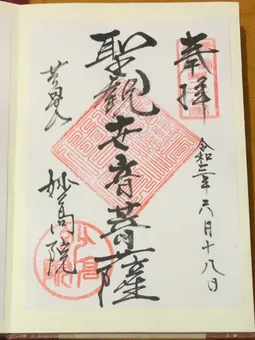 奉拝
令和三年六月十八日
聖観世音菩薩
妙高院